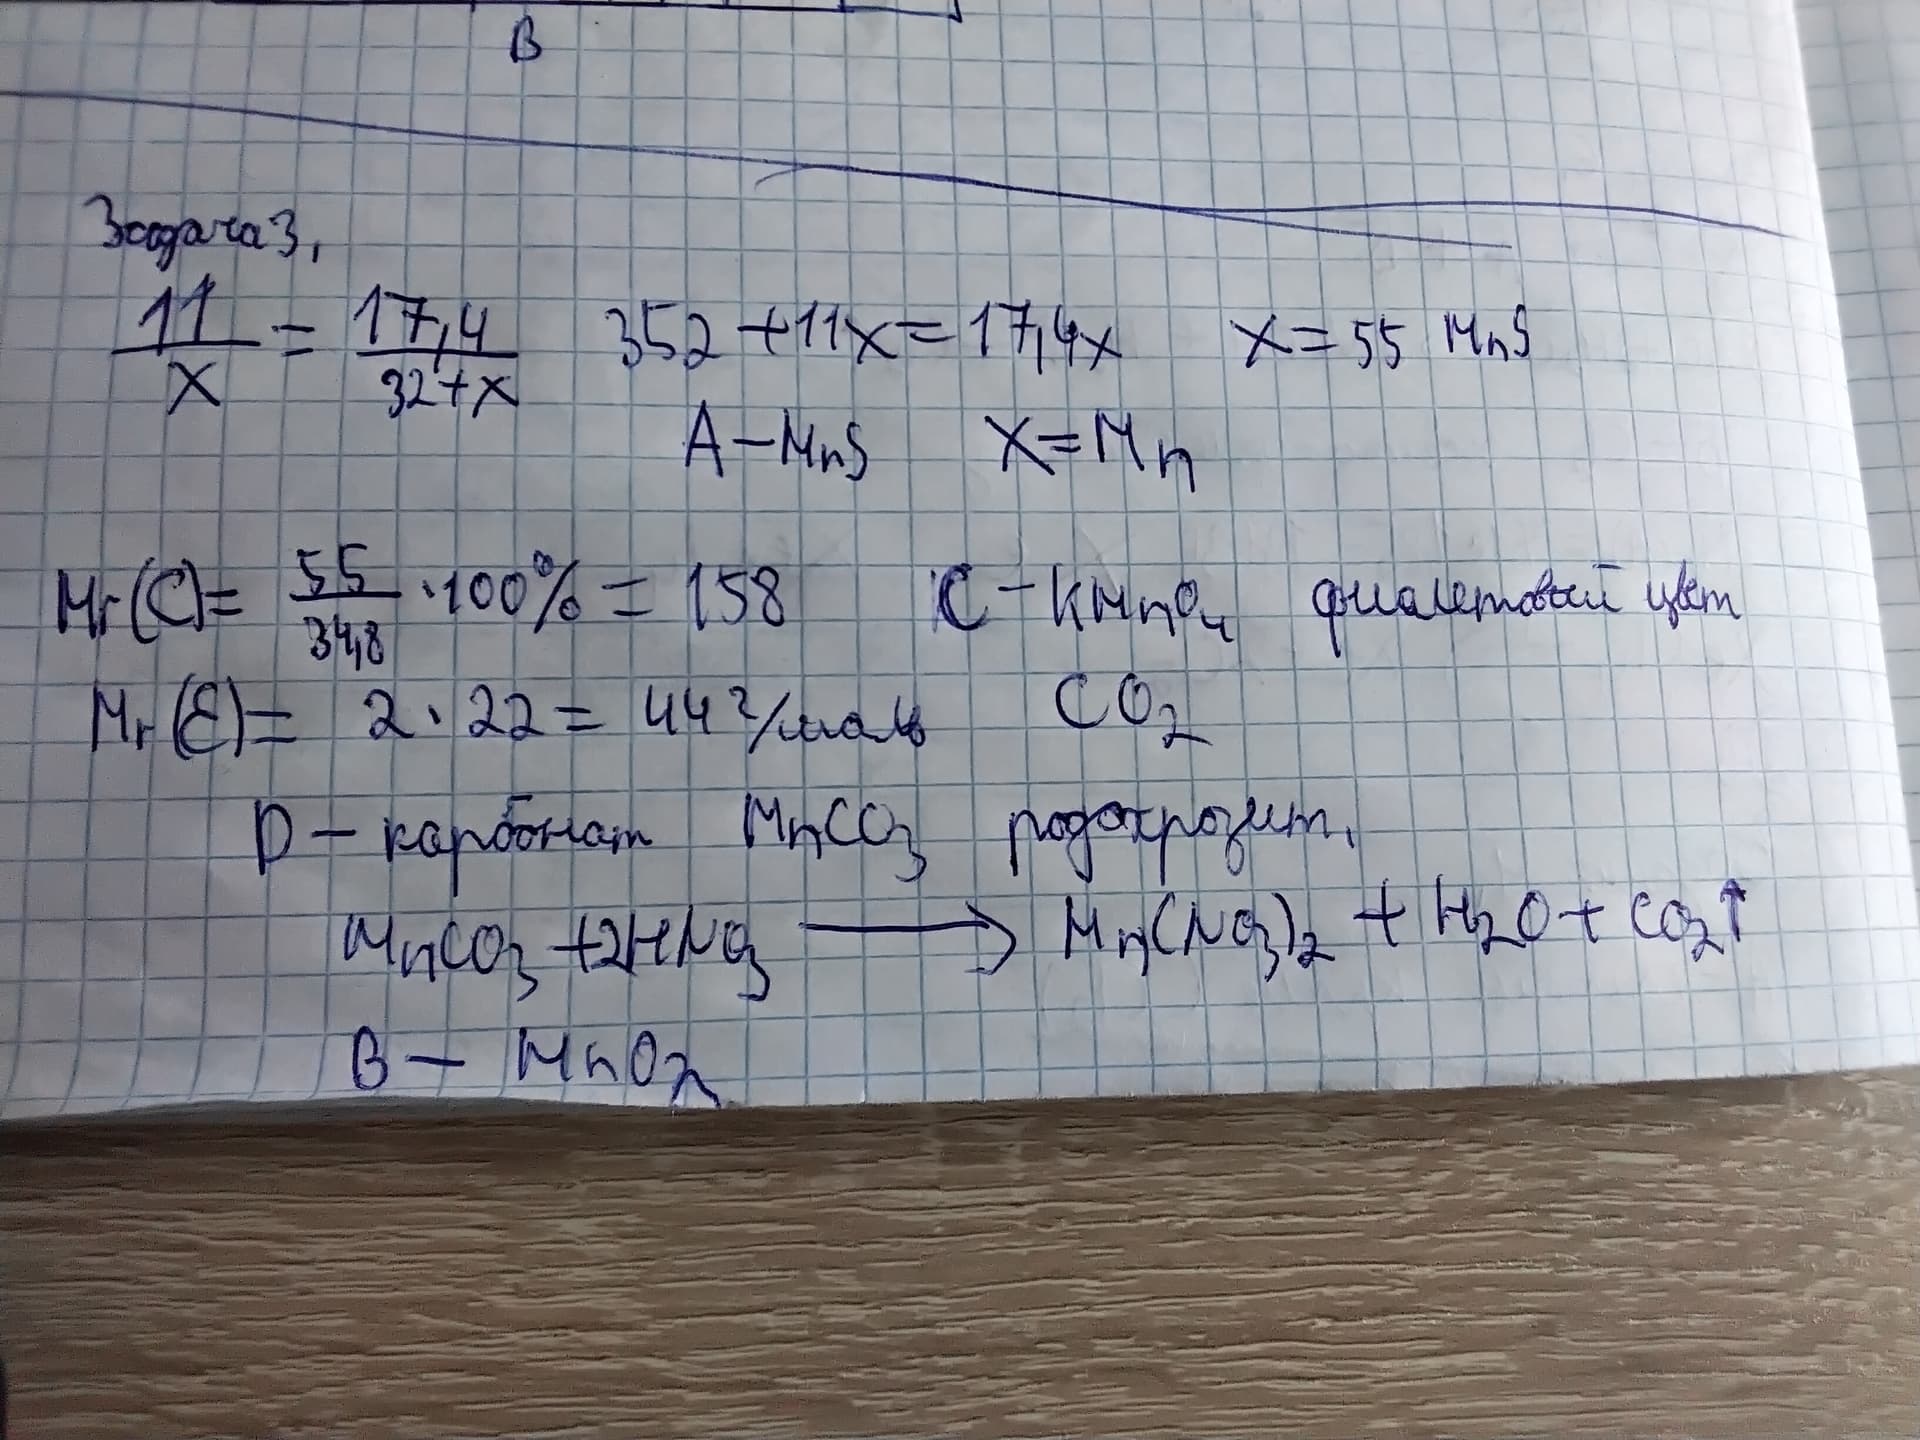 В
Задача 3,
11/x = 17,4/(32+x) 352+11x=17,4x x=55 MnS
A-MnS X=Mn
Mr(C)= 55/34,8 ·100%=158 C-KMnO₄ фиалетовый цвет
Mr(E)= 2·22=44 г/моль CO₂
D-карбонат MnCO₃ родохрозит,
MnCO₃+2HNO₃ ⟶ Mn(NO₃)₂+H₂O+CO₂↑
B- MnO₂